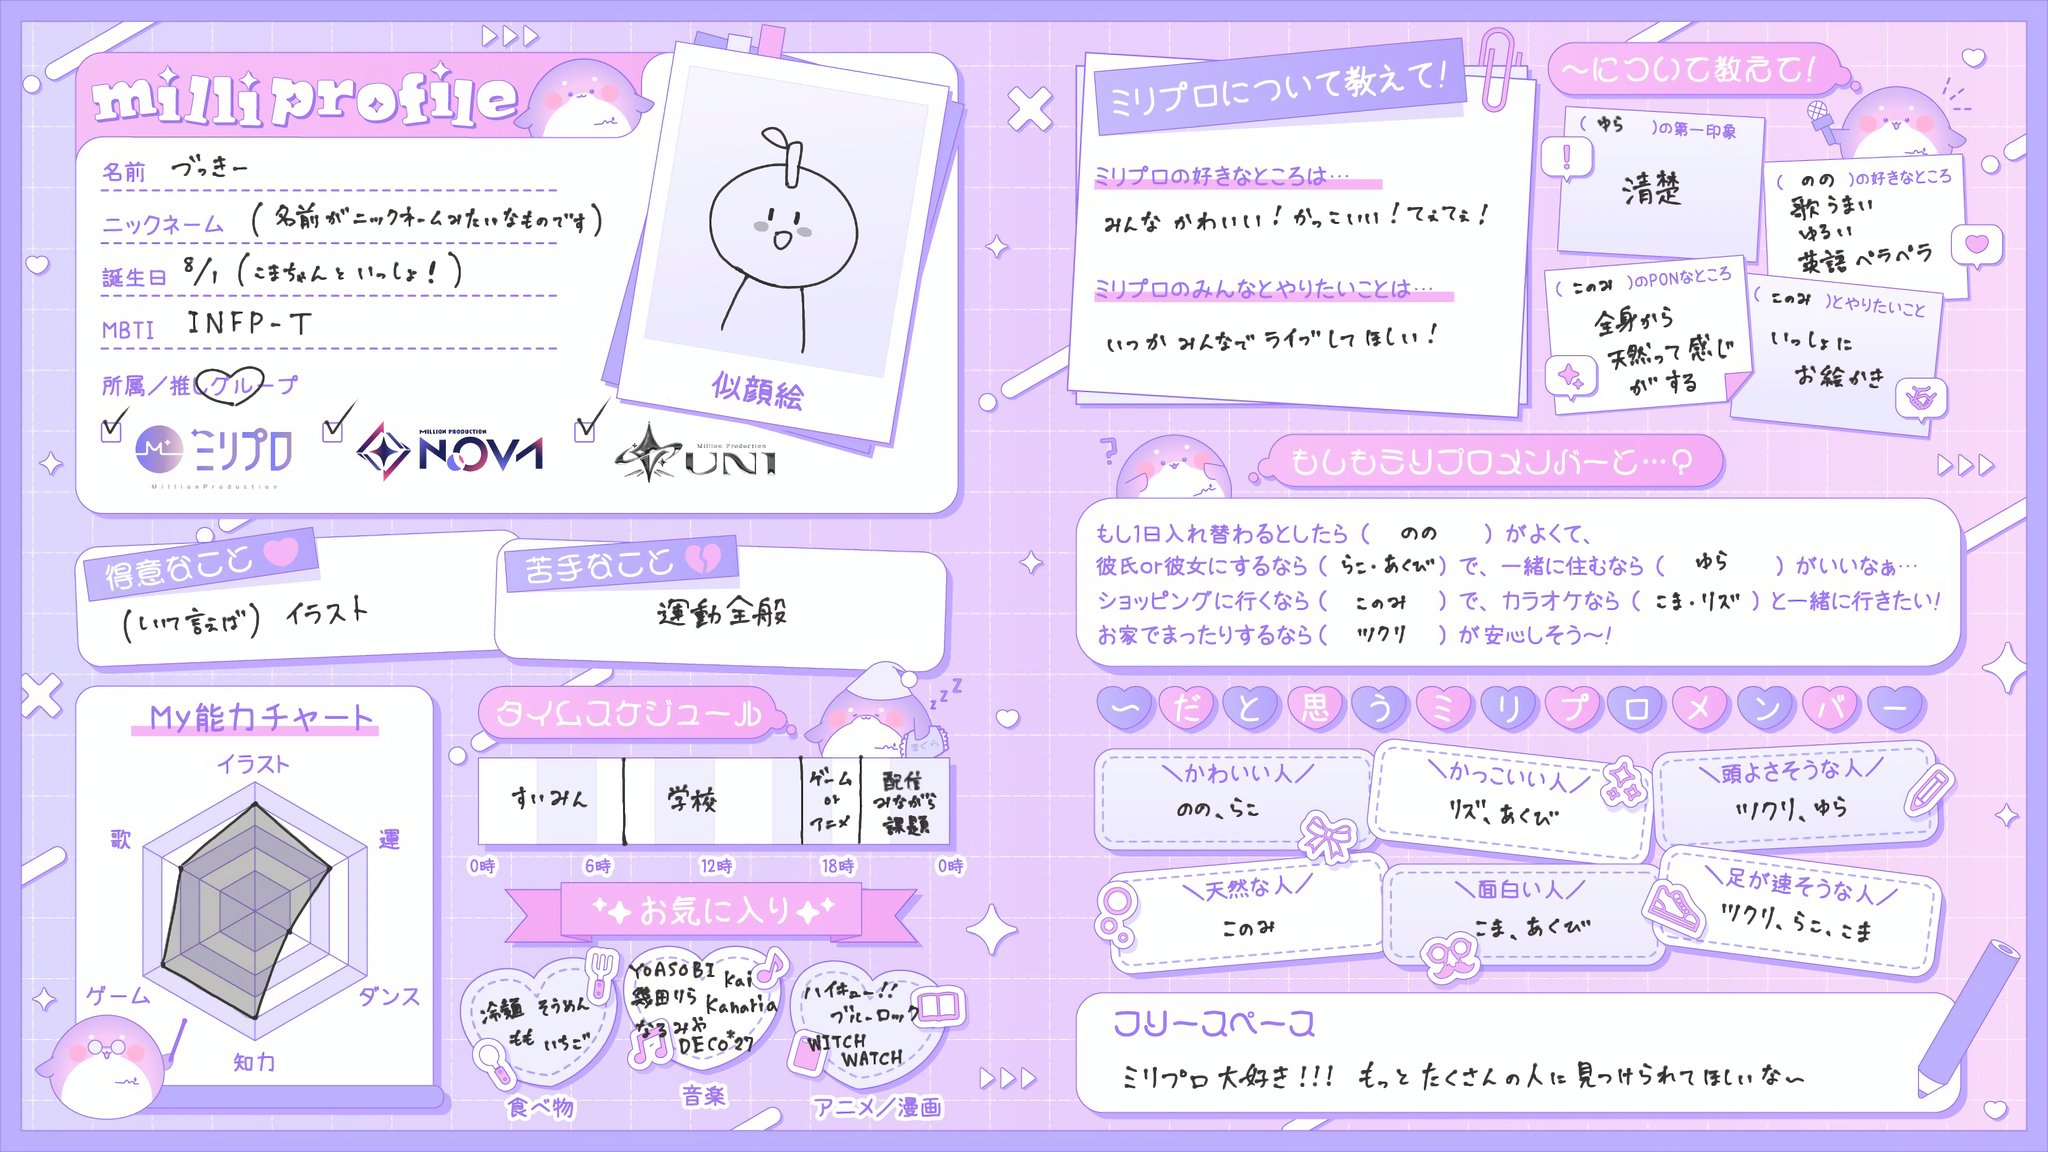 milli profile
名前 づっきー
ニックネーム (名前がニックネームみたいなものです)
誕生日 8/1 (こまちゃんといっしょ!)
MBTI INFP-T
所属/推しグループ
ミリプロ
MillionProduction
MILLION PRODUCTION
NOVA
Million Production
UNI
似顔絵
得意なこと
(しいて言えば) イラスト
苦手なこと
運動全般
My能力チャート
イラスト
歌
運
ゲーム
ダンス
知力
タイムスケジュール
zzz
まくら
すいみん
学校
ゲーム
or
アニメ
配信
みながら
課題
0時 6時 12時 18時 0時
お気に入り
冷麺 そうめん
もも いちご
食べ物
YOASOBI Kai
幾田りら Kanaria
なるみや
DECO*27
音楽
ハイキュー!!
ブルーロック
WITCH
WATCH
アニメ/漫画
ミリプロについて教えて!
ミリプロの好きなところは…
みんな かわいい! かっこいい! てぇてぇ!
ミリプロのみんなとやりたいことは…
いつか みんなで ライブしてほしい!
〜について教えて!
( ゆら )の第一印象
清楚
( のの )の好きなところ
歌うまい
ゆるい
英語ペラペラ
( このみ )のPONなところ
全身から
天然って感じ
がする
( このみ )とやりたいこと
いっしょに
お絵かき
もしもミリプロメンバーと…?
もし1日入れ替わるとしたら( のの )がよくて、
彼氏or彼女にするなら( らこ・あくび )で、一緒に住むなら( ゆら )がいいなぁ…
ショッピングに行くなら( このみ )で、カラオケなら( こま・リズ )と一緒に行きたい!
お家でまったりするなら( ツクリ )が安心しそう〜!
〜だと思うミリプロメンバー
\かわいい人/
のの、らこ
\かっこいい人/
リズ、あくび
\頭よさそうな人/
ツクリ、ゆら
\天然な人/
このみ
\面白い人/
こま、あくび
\足が速そうな人/
ツクリ、らこ、こま
フリースペース
ミリプロ大好き!!! もっとたくさんの人に見つけられてほしいな〜